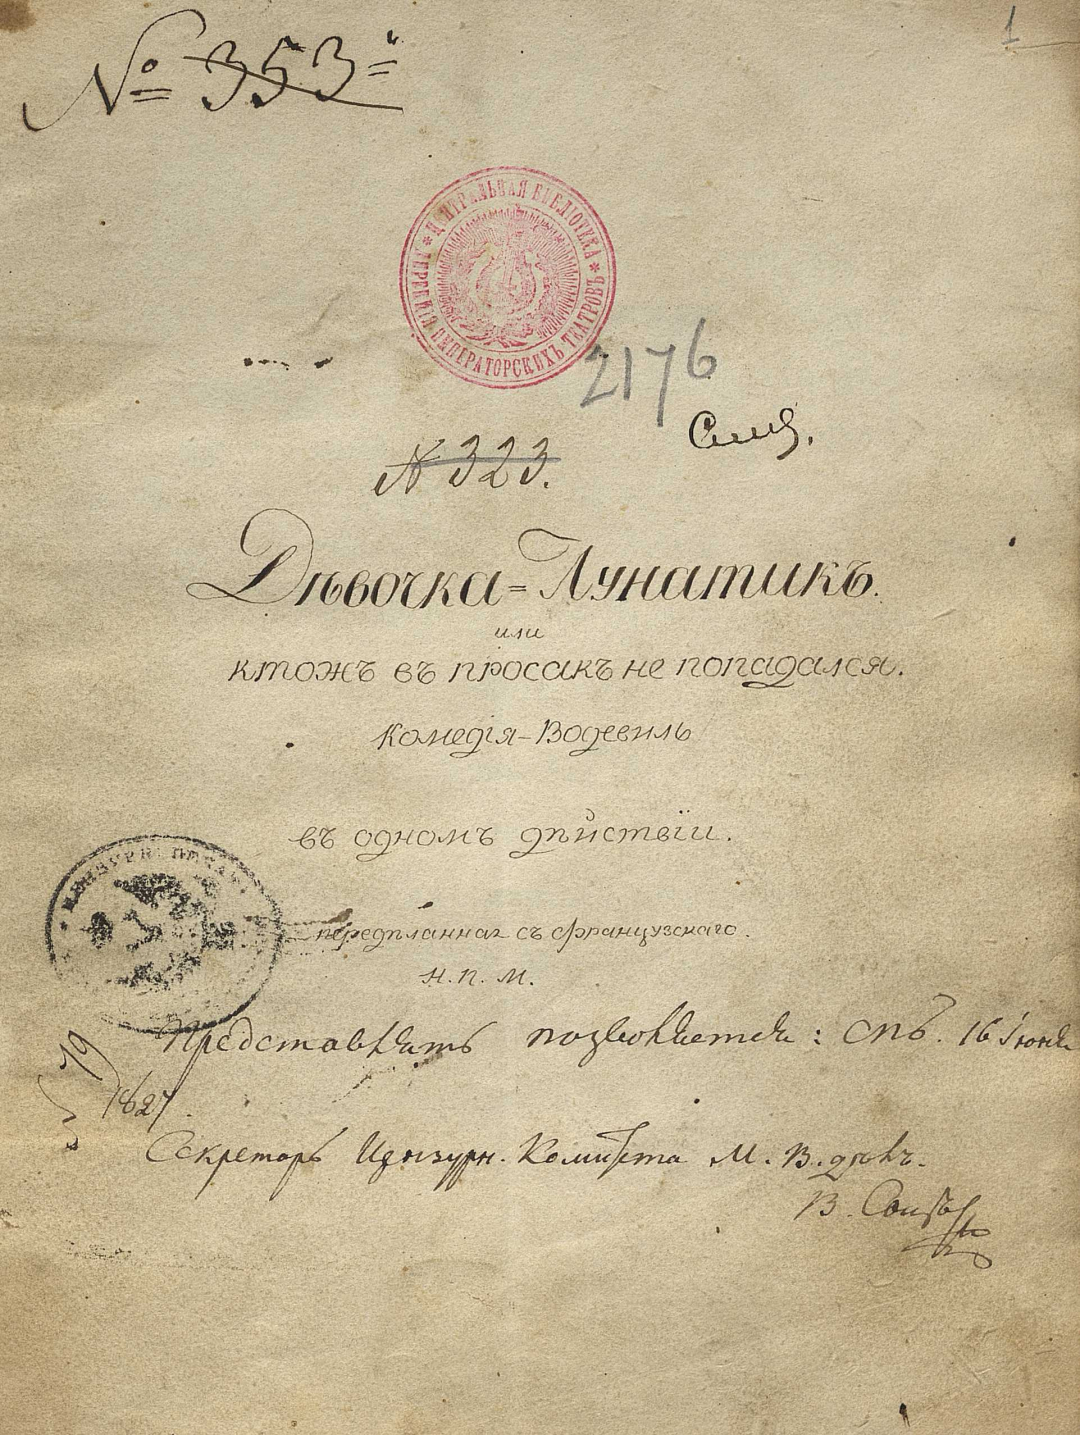 1
№ 353
ЦЕНТРАЛЬНАЯ БИБЛІОТЕКА * ИМПЕРАТОРСКИХЪ ТЕАТРОВЪ *
2176
№ 323.
Дѣвочка=Лунатикъ.
или
ктожъ въ просакъ не попадался.
Комедія-Водевиль
въ одномъ дѣйствіи.
передѣланная съ французскаго.
Н. П. М.
Представлять позволяется: СПб. 16 Іюня
1827.
Секретарь Цензурн. Комитета М. В. дѣлъ.
В.